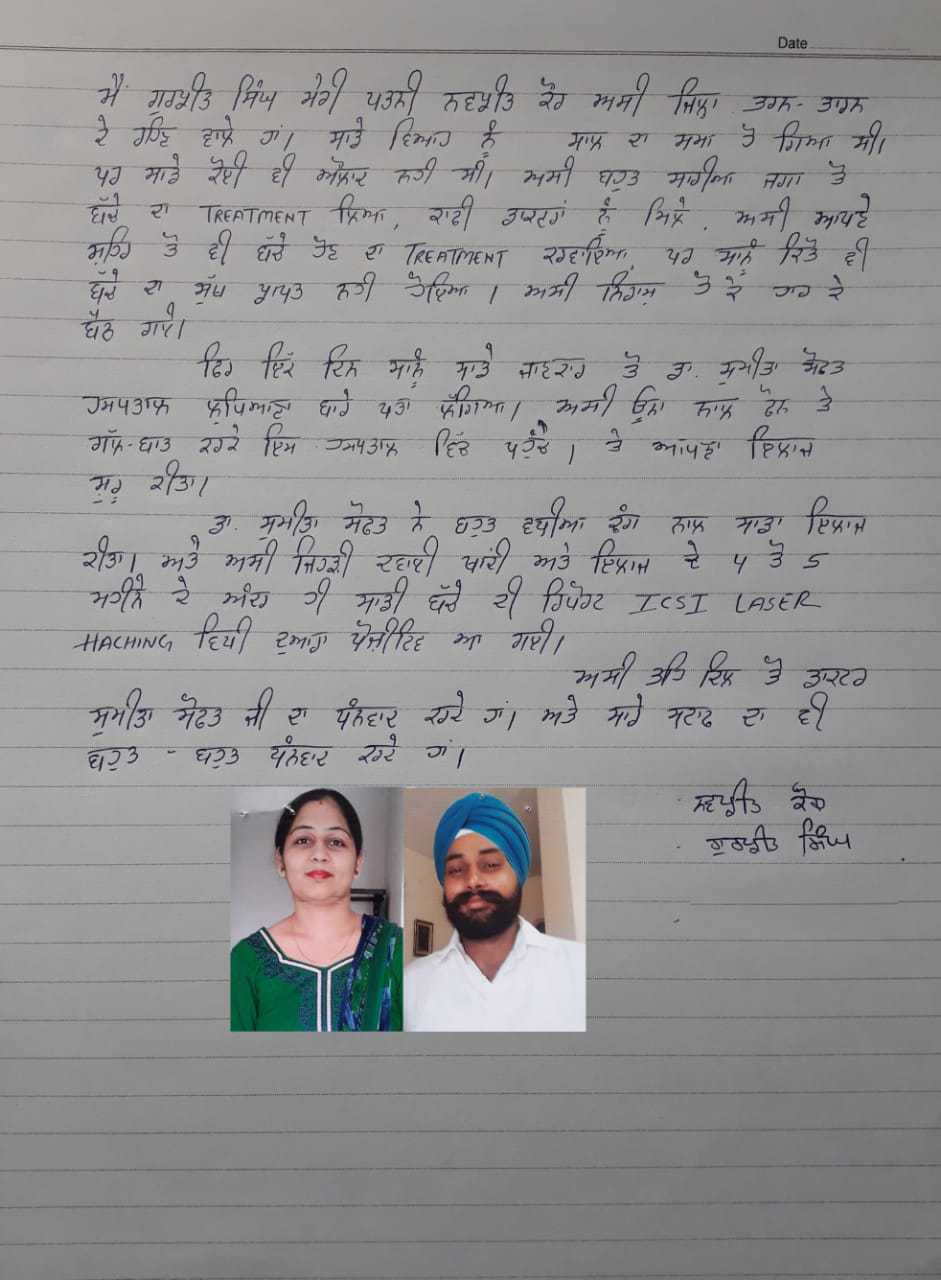 Date
ਮੈਂ ਗੁਰਪ੍ਰੀਤ ਸਿੰਘ ਮੇਰੀ ਪਤਨੀ ਨਵਪ੍ਰੀਤ ਕੌਰ ਅਸੀ ਜਿਲਾ ਤਰਨ-ਤਾਰਨ
ਦੇ ਰਹਿਣ ਵਾਲੇ ਹਾਂ। ਸਾਡੇ ਵਿਆਹ ਨੂੰ ਸਾਲ ਦਾ ਸਮਾ ਹੋ ਗਿਆ ਸੀ।
ਪਰ ਸਾਡੇ ਕੋਈ ਵੀ ਔਲਾਦ ਨਹੀ ਸੀ। ਅਸੀ ਬਹੁਤ ਸਾਰੀਆ ਜਗਾ ਤੋ
ਬੱਚੇ ਦਾ TREATMENT ਲਿਆ, ਕਾਫੀ ਡਾਕਟਰਾਂ ਨੂੰ ਮਿਲੇ, ਅਸੀ ਆਪਣੇ
ਸ਼ਹਿਰ ਤੋ ਵੀ ਬੱਚੇ ਹੋਣ ਦਾ TREATMENT ਕਰਵਾਇਆ, ਪਰ ਸਾਨੂੰ ਕਿਤੋ ਵੀ
ਬੱਚੇ ਦਾ ਸੁੱਖ ਪ੍ਰਾਪਤ ਨਹੀ ਹੋਇਆ। ਅਸੀ ਨਿਰਾਸ਼ ਹੋ ਕੇ ਹਾਰ ਕੇ
ਬੈਠ ਗਏ।
ਫਿਰ ਇੱਕ ਦਿਨ ਸਾਨੂੰ ਸਾਡੇ ਜਾਣਕਾਰ ਤੋ ਡਾ. ਸੁਮੀਤਾ ਸੋਫਤ
ਹਸਪਤਾਲ ਲੁਧਿਆਣਾ ਬਾਰੇ ਪਤਾ ਲੱਗਿਆ। ਅਸੀ ਉਨਾ ਨਾਲ ਫੋਨ ਤੇ
ਗੱਲ-ਬਾਤ ਕਰਕੇ ਇਸ ਹਸਪਤਾਲ ਵਿੱਚ ਪਹੁੰਚੇ। ਤੇ ਆਪਣਾ ਇਲਾਜ
ਸ਼ੁਰੂ ਕੀਤਾ।
ਡਾ. ਸੁਮੀਤਾ ਸੋਫਤ ਨੇ ਬਹੁਤ ਵਧੀਆ ਢੰਗ ਨਾਲ ਸਾਡਾ ਇਲਾਜ
ਕੀਤਾ। ਅਤੇ ਅਸੀ ਜਿਹੜੀ ਦਵਾਈ ਖਾਂਦੀ ਅਤੇ ਇਲਾਜ ਦੇ 4 ਤੋ 5
ਮਹੀਨੇ ਦੇ ਅੰਦਰ ਹੀ ਸਾਡੀ ਬੱਚੇ ਦੀ ਰਿਪੋਰਟ ICSI LASER
HACHING ਵਿਧੀ ਦੁਆਰਾ ਪੋਜ਼ੀਟਿਵ ਆ ਗਈ।
ਅਸੀ ਤਹਿ ਦਿਲ ਤੋ ਡਾਕਟਰ
ਸੁਮੀਤਾ ਸੋਫਤ ਜੀ ਦਾ ਧੰਨਵਾਦ ਕਰਦੇ ਹਾਂ। ਅਤੇ ਸਾਰੇ ਸਟਾਫ ਦਾ ਵੀ
ਬਹੁਤ - ਬਹੁਤ ਧੰਨਵਾਦ ਕਰਦੇ ਹਾਂ।
ਨਵਪ੍ਰੀਤ ਕੌਰ
ਗੁਰਪ੍ਰੀਤ ਸਿੰਘ